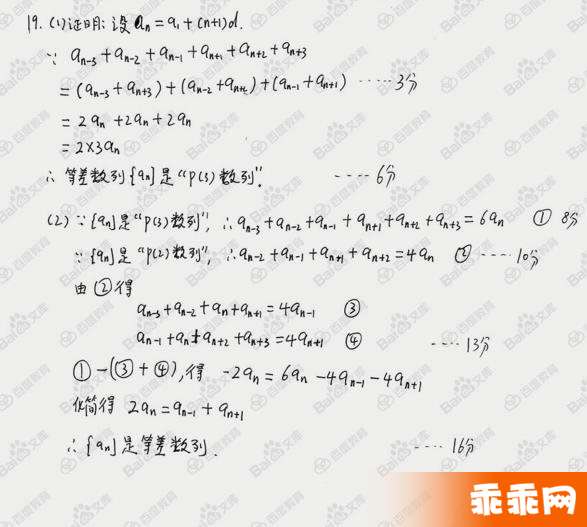 19. (1)证明: 设 aₙ = a₁ + (n+1)d.
∵ aₙ₋₃ + aₙ₋₂ + aₙ₋₁ + aₙ₊₁ + aₙ₊₂ + aₙ₊₃
= (aₙ₋₃ + aₙ₊₃) + (aₙ₋₂ + aₙ₊₂) + (aₙ₋₁ + aₙ₊₁) ······3分
= 2aₙ + 2aₙ + 2aₙ
= 2×3aₙ
∴ 等差数列{aₙ}是“P(3)数列”. ····6分
(2) ∵{aₙ}是“P(3)数列”, ∴aₙ₋₃ + aₙ₋₂ + aₙ₋₁ + aₙ₊₁ + aₙ₊₂ + aₙ₊₃ = 6aₙ ① 8分
∵{aₙ}是“P(2)数列”, ∴aₙ₋₂ + aₙ₋₁ + aₙ₊₁ + aₙ₊₂ = 4aₙ ② ····10分
由②得
aₙ₋₃ + aₙ₋₂ + aₙ + aₙ₊₁ = 4aₙ₋₁ ③
aₙ₋₁ + aₙ + aₙ₊₂ + aₙ₊₃ = 4aₙ₊₁ ④ ····13分
① - (③ + ④), 得 -2aₙ = 6aₙ - 4aₙ₋₁ - 4aₙ₊₁
化简得 2aₙ = aₙ₋₁ + aₙ₊₁
∴{aₙ}是等差数列. ····16分
乖乖网